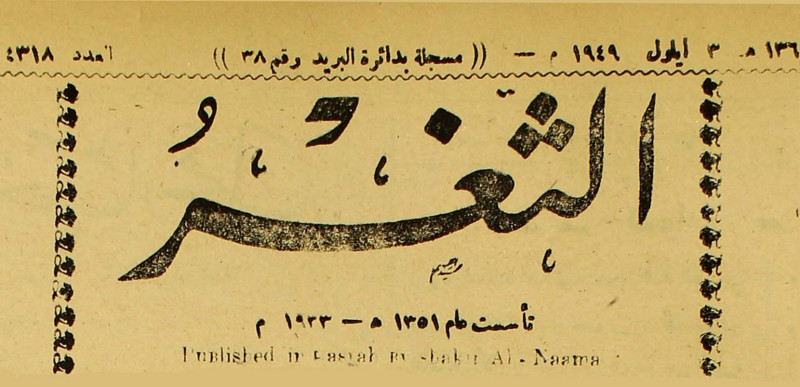 ١٣٦ هـ ٣ ايلول ١٩٤٩ م — (( مسجلة بدائرة البريد رقم ٣٨ )) العدد ٤٣١٨
الثغر
تأسست عام ١٣٥١ هـ — ١٩٣٣ م
Published in Basrah By Shakir Al-Naama